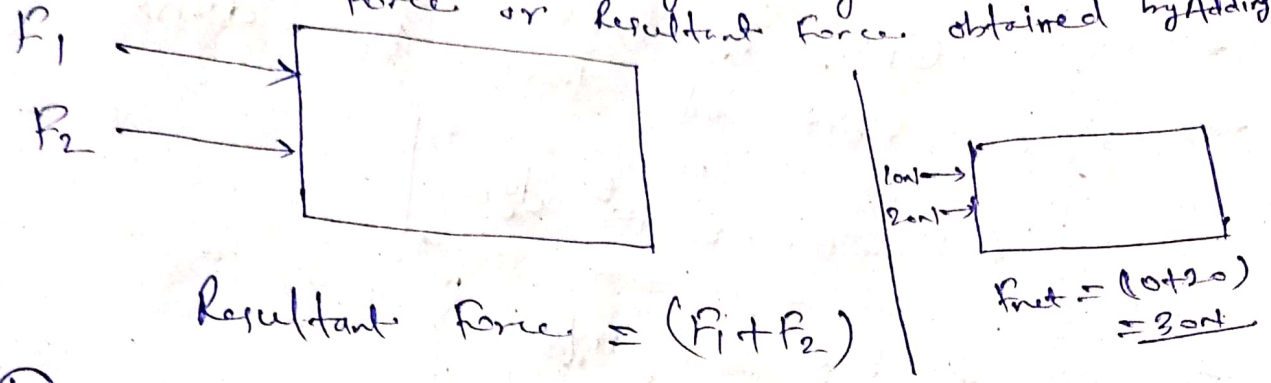 Force or Resultant Force obtained by Adding
F1
F2
10N
20N
Resultant force = (F1+F2)
Fnet = (10+20)
= 30N